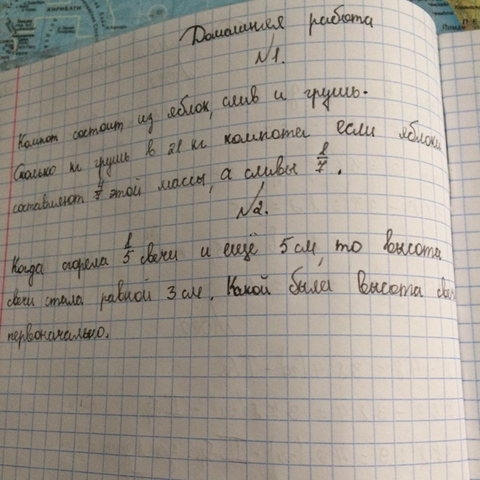 КИРИБАТИ
Домашняя работа
№1.
Компот состоит из яблок, слив и грушь.
Сколько кг грушь в 21 кг компота если яблоки
составляют 4/7 этой массы, а сливы 1/7.
№2.
Когда сгорела 1/5 свечи и ещё 5 см, то высота
свечи стала равной 3 см. Какой была высота
первоначально.